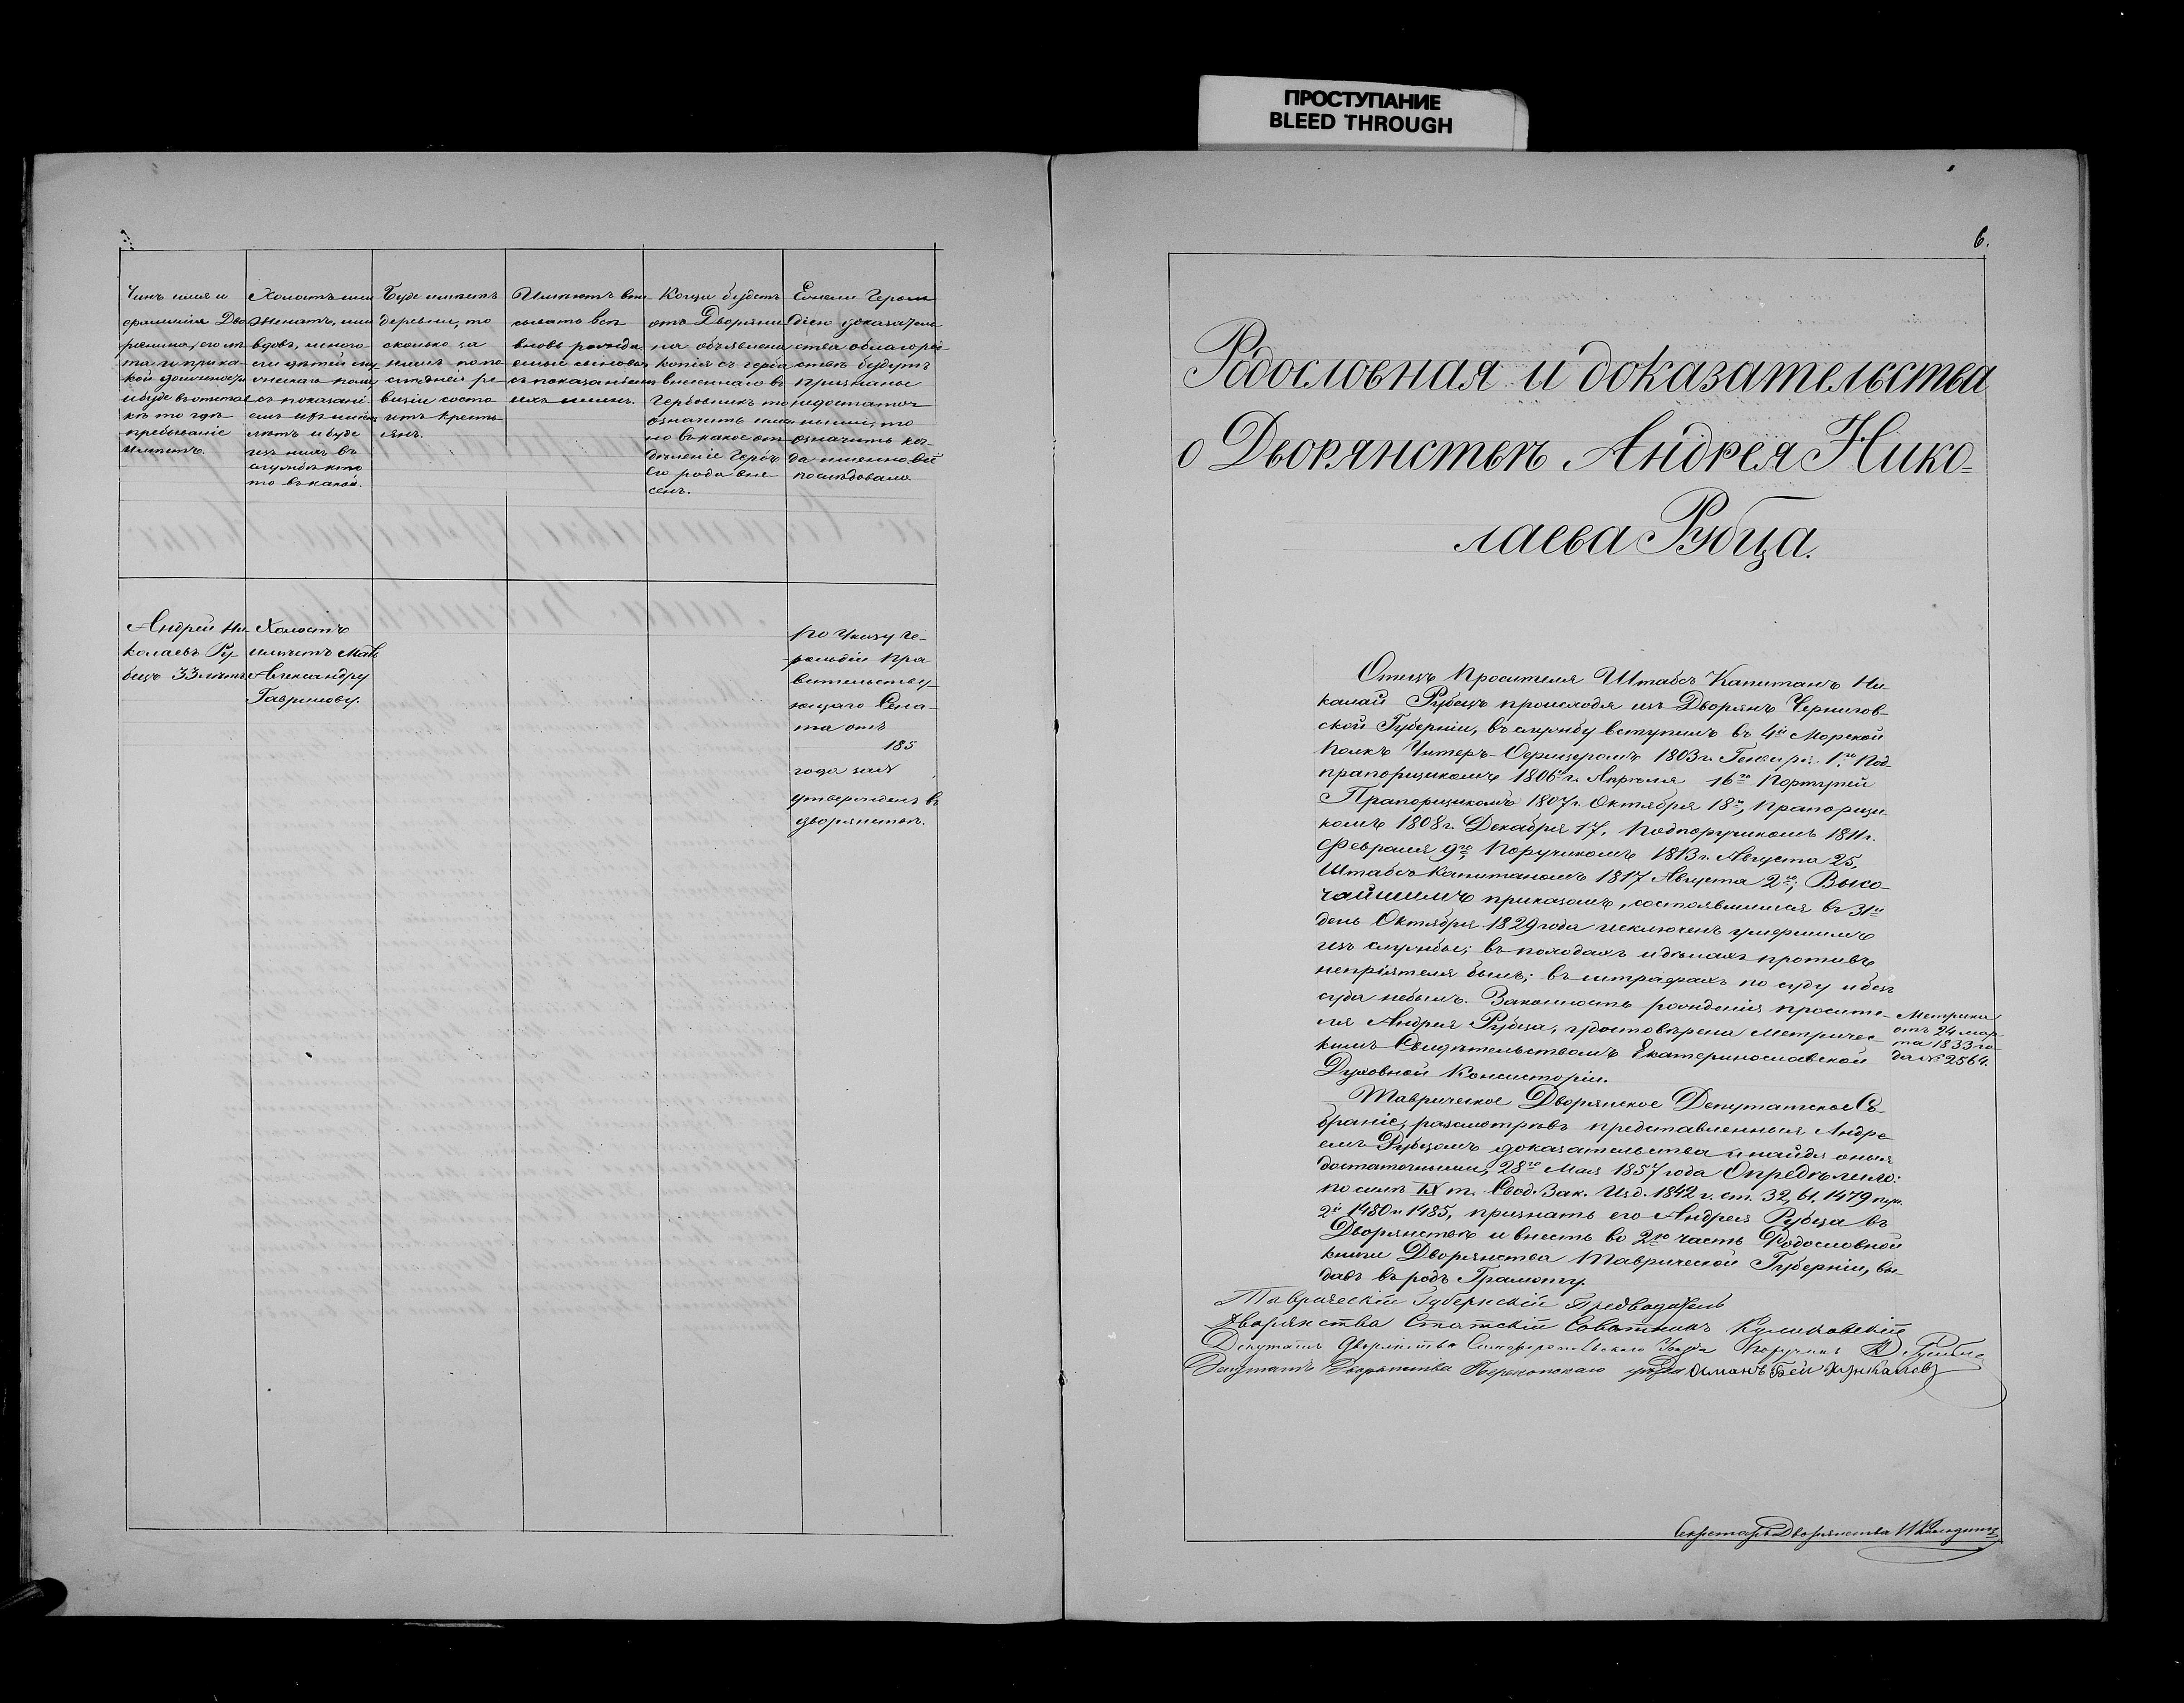 ПРОСТУПАНИЕ
BLEED THROUGH
Чинъ имя и
фамилія Дво-
рянина, его лѣ-
та и при ка-
кой должности
и буде въ отстав
кѣ то гдѣ
пребываніе
имѣетъ.
Холостъ или
женатъ, или
вдовъ, много-
ли дѣтей му
ческаго полу
съ показані-
емъ ихъ имянъ
лѣтъ и буде
изъ нихъ въ
службѣ кто
то въ какой.
Буде имѣетъ
деревни, то
сколько за
нимъ по по-
слѣдней ре-
визіи состо-
итъ кресть-
янъ.
Имѣютъ впи-
сывать всѣ
вновь рожда-
емые сыновья
съ показаніемъ
ихъ имянъ.
Когда будетъ
отъ Дворяни
на объявлена
копія съ герба
внесеннаго въ
Гербовникъ то
означить имян
но въ какое от-
дѣленіе Гербъ
его рода вне-
сенъ.
Ежели Героль
діею доказатель
ства облагород
ствѣ будутъ
признаны
недостаточ
ными, то
означить ког-
да именно сіе
послѣдовало.
Андрей Ни-
колаевъ Ру-
бецъ 33 лѣтъ
Холостъ
имѣетъ Мать
Александру
Гаврилову.
По Указу Ге-
рольдіи Пра
вительству-
ющаго Сена-
та отъ
185
года за №
утвержденъ въ
дворянствѣ.
6.
Родословная и доказательства
о Дворянствѣ Андрея Нико=
лаева Рубца.
Отецъ Просителя Штабсъ Капитанъ Ни-
колай Рубецъ происходя изъ Дворянъ Чернигов-
ской Губерніи, въ службу вступилъ въ 4й Морской
Полкъ Унтеръ-Офицеромъ 1803 г. Генваря 1го Под-
прапорщикомъ 1806 г. Апрѣля 16го Портупей
Прапорщикомъ 1807 г. Октября 18го, Прапорщи-
комъ 1808 г. Декабря 17, Подпоручикомъ 1811 г.
Февраля 9го, Поручикомъ 1813 г. Августа 25,
Штабсъ Капитаномъ 1817 Августа 2го; Высо-
чайшимъ приказомъ, состоявшимся въ 31й
день Октября 1829 года исключенъ умершимъ
изъ службы; въ походахъ и дѣлахъ противъ
непріятеля былъ; въ штрафахъ по суду и безъ
суда небылъ. Законность рожденія просите-
ля Андрея Рубца, удостовѣрена Метричес-
кимъ Свидѣтельствомъ Екатеринославской
Духовной Консисторіи.
Метрика
отъ 24 мар-
та 1833 го-
да № 2564.
Таврическое Дворянское Депутатское Со-
браніе, разсмотрѣвъ представленныя Андре-
емъ Рубцомъ доказательства и найдя оныя
достаточными, 28го Мая 1857 года Опредѣлило:
по силѣ IX т. Свод. Зак. Изд. 1842 г. ст. 32, 61, 1479 пун.
2й 1480 и 1485, признать его Андрея Рубца въ
Дворянствѣ и внесть во 2ю часть Родословной
книги Дворянства Таврической Губерніи, вы-
давъ въ родъ Грамоту.
Таврическій Губернскій Предводитель
Дворянства Статскій Совѣтникъ Куликовскій
Депутатъ Дворянства Симферопольскаго Уѣзда Поручикъ
Депутатъ Дворянства Перекопскаго уѣзда Османъ Бей
Секретарь Дворянства